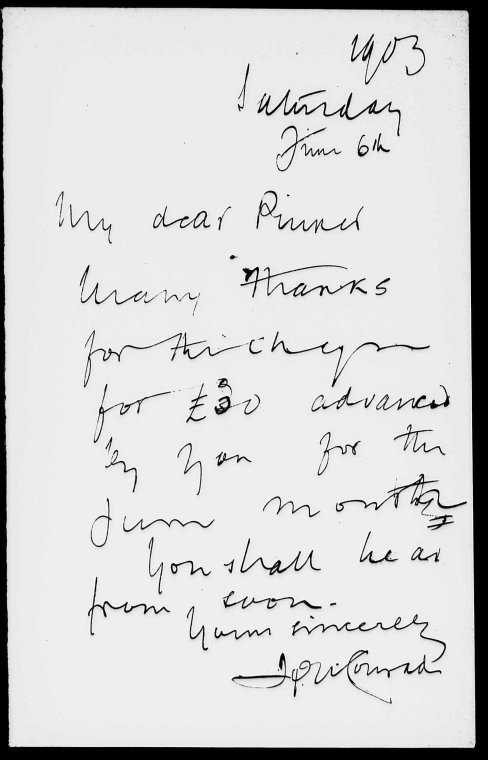 1903
Saturday
June 6th
My dear Pinker
Many thanks
for the cheque
for £30 advanced
by you for the
June month
You shall hear
from soon.
Yours sincerely
Jph Conrad